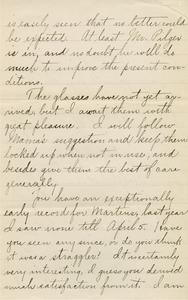 is easily seen that no better could
be expected. At least Mr. Pilger
is in, and no doubt he will do
much to improve the present con-
ditions.
The glasses have not yet ar-
rived, but I await them with
great pleasure. I will follow
Mama's suggestion and keep them
locked up when not in use, and
besides give them the best of care
generally.
You have an exceptionally
early record for Martins, last year
I saw none till April 5. Have
you seen any since, or do you think
it was a straggler? It is certainly
very interesting, & I guess you derived
much satisfaction from it. I am